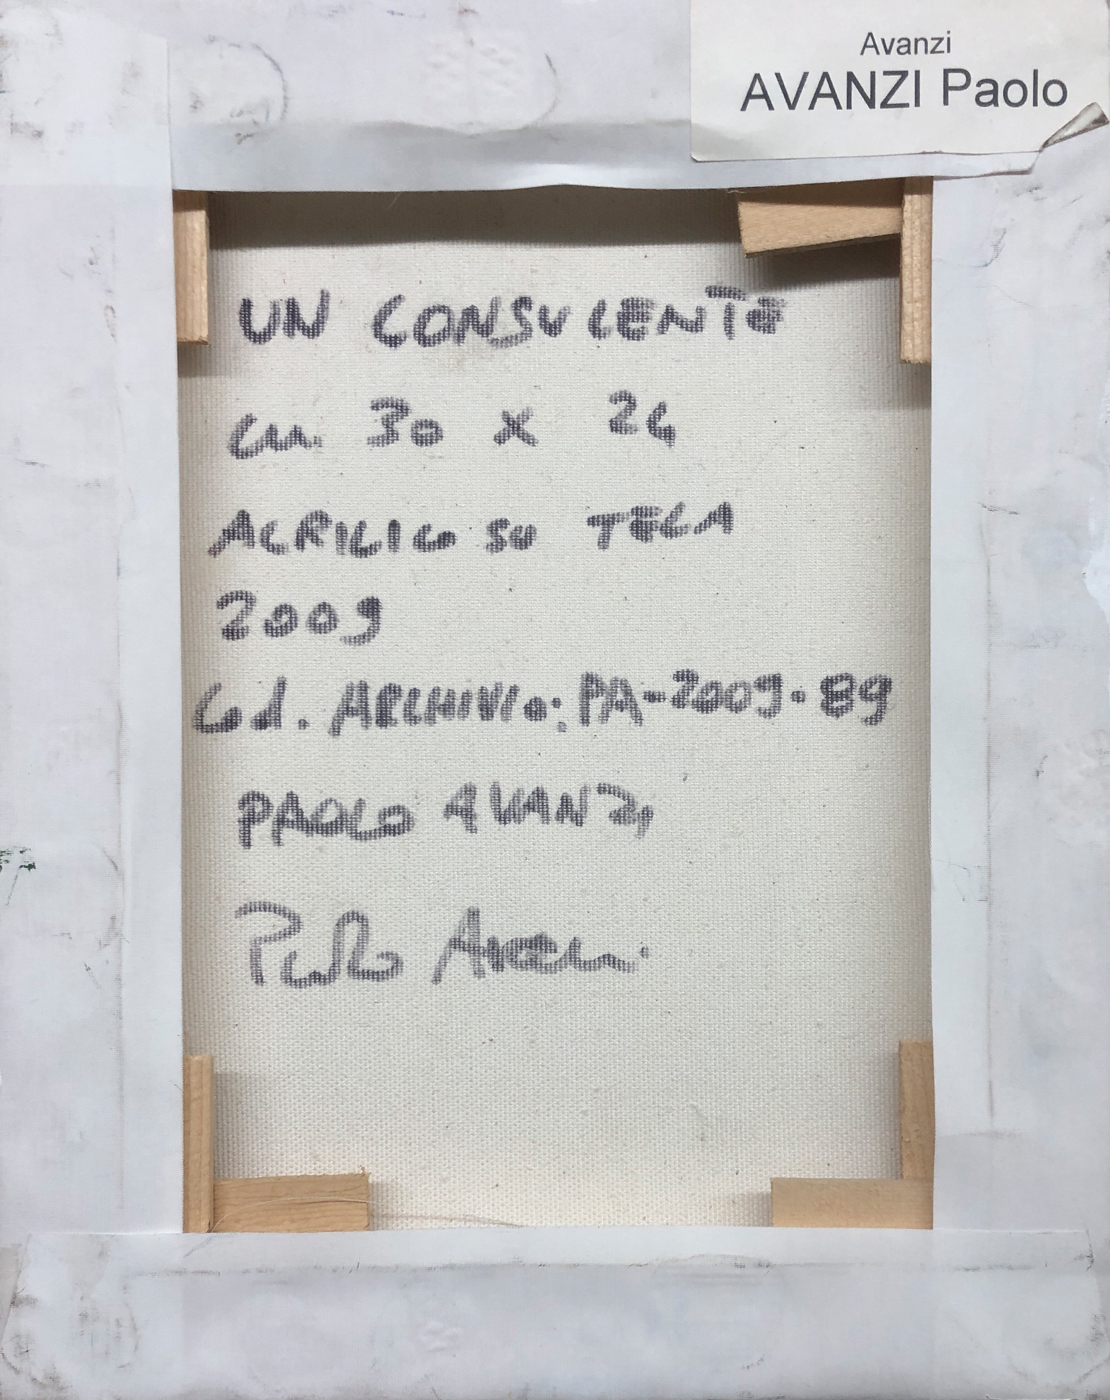 Avanzi
AVANZI Paolo
UN CONSULENTE
cm 30 x 24
ACRILICO SU TELA
2009
Cod. ARCHIVIO: PA-2009-89
PAOLO AVANZI
Paolo Avanzi